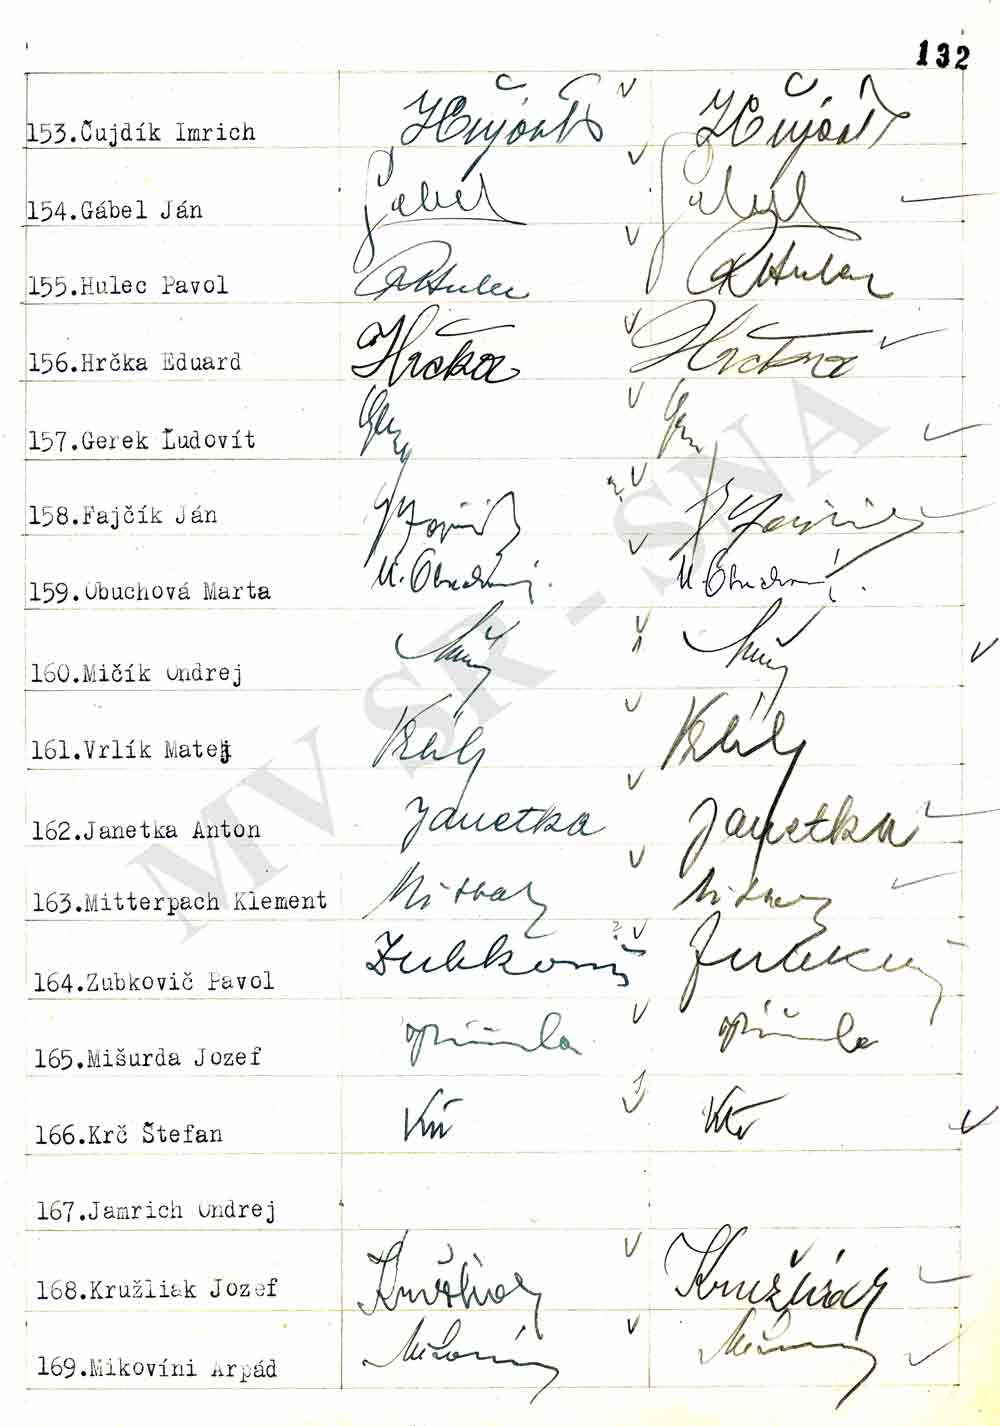 132
153.Čujdík Imrich
154.Gábel Ján Gábel
155.Hulec Pavol Hulec
156.Hrčka Eduard Hrčka Hrčka
157.Gerek Ľudovít
158.Fajčík Ján
159.Obuchová Marta M. Obuchová M. Obuchová
160.Mičík Ondrej
161.Vrlík Matej
162.Janetka Anton Janetka Janetka
163.Mitterpach Klement
164.Zubkovič Pavol Zubkovič
165.Mišurda Jozef
166.Krč Štefan Krč Krč
167.Jamrich Ondrej
168.Kružliak Jozef Kružliak Kružliak
169.Mikovíni Arpád
MV SR - SNA